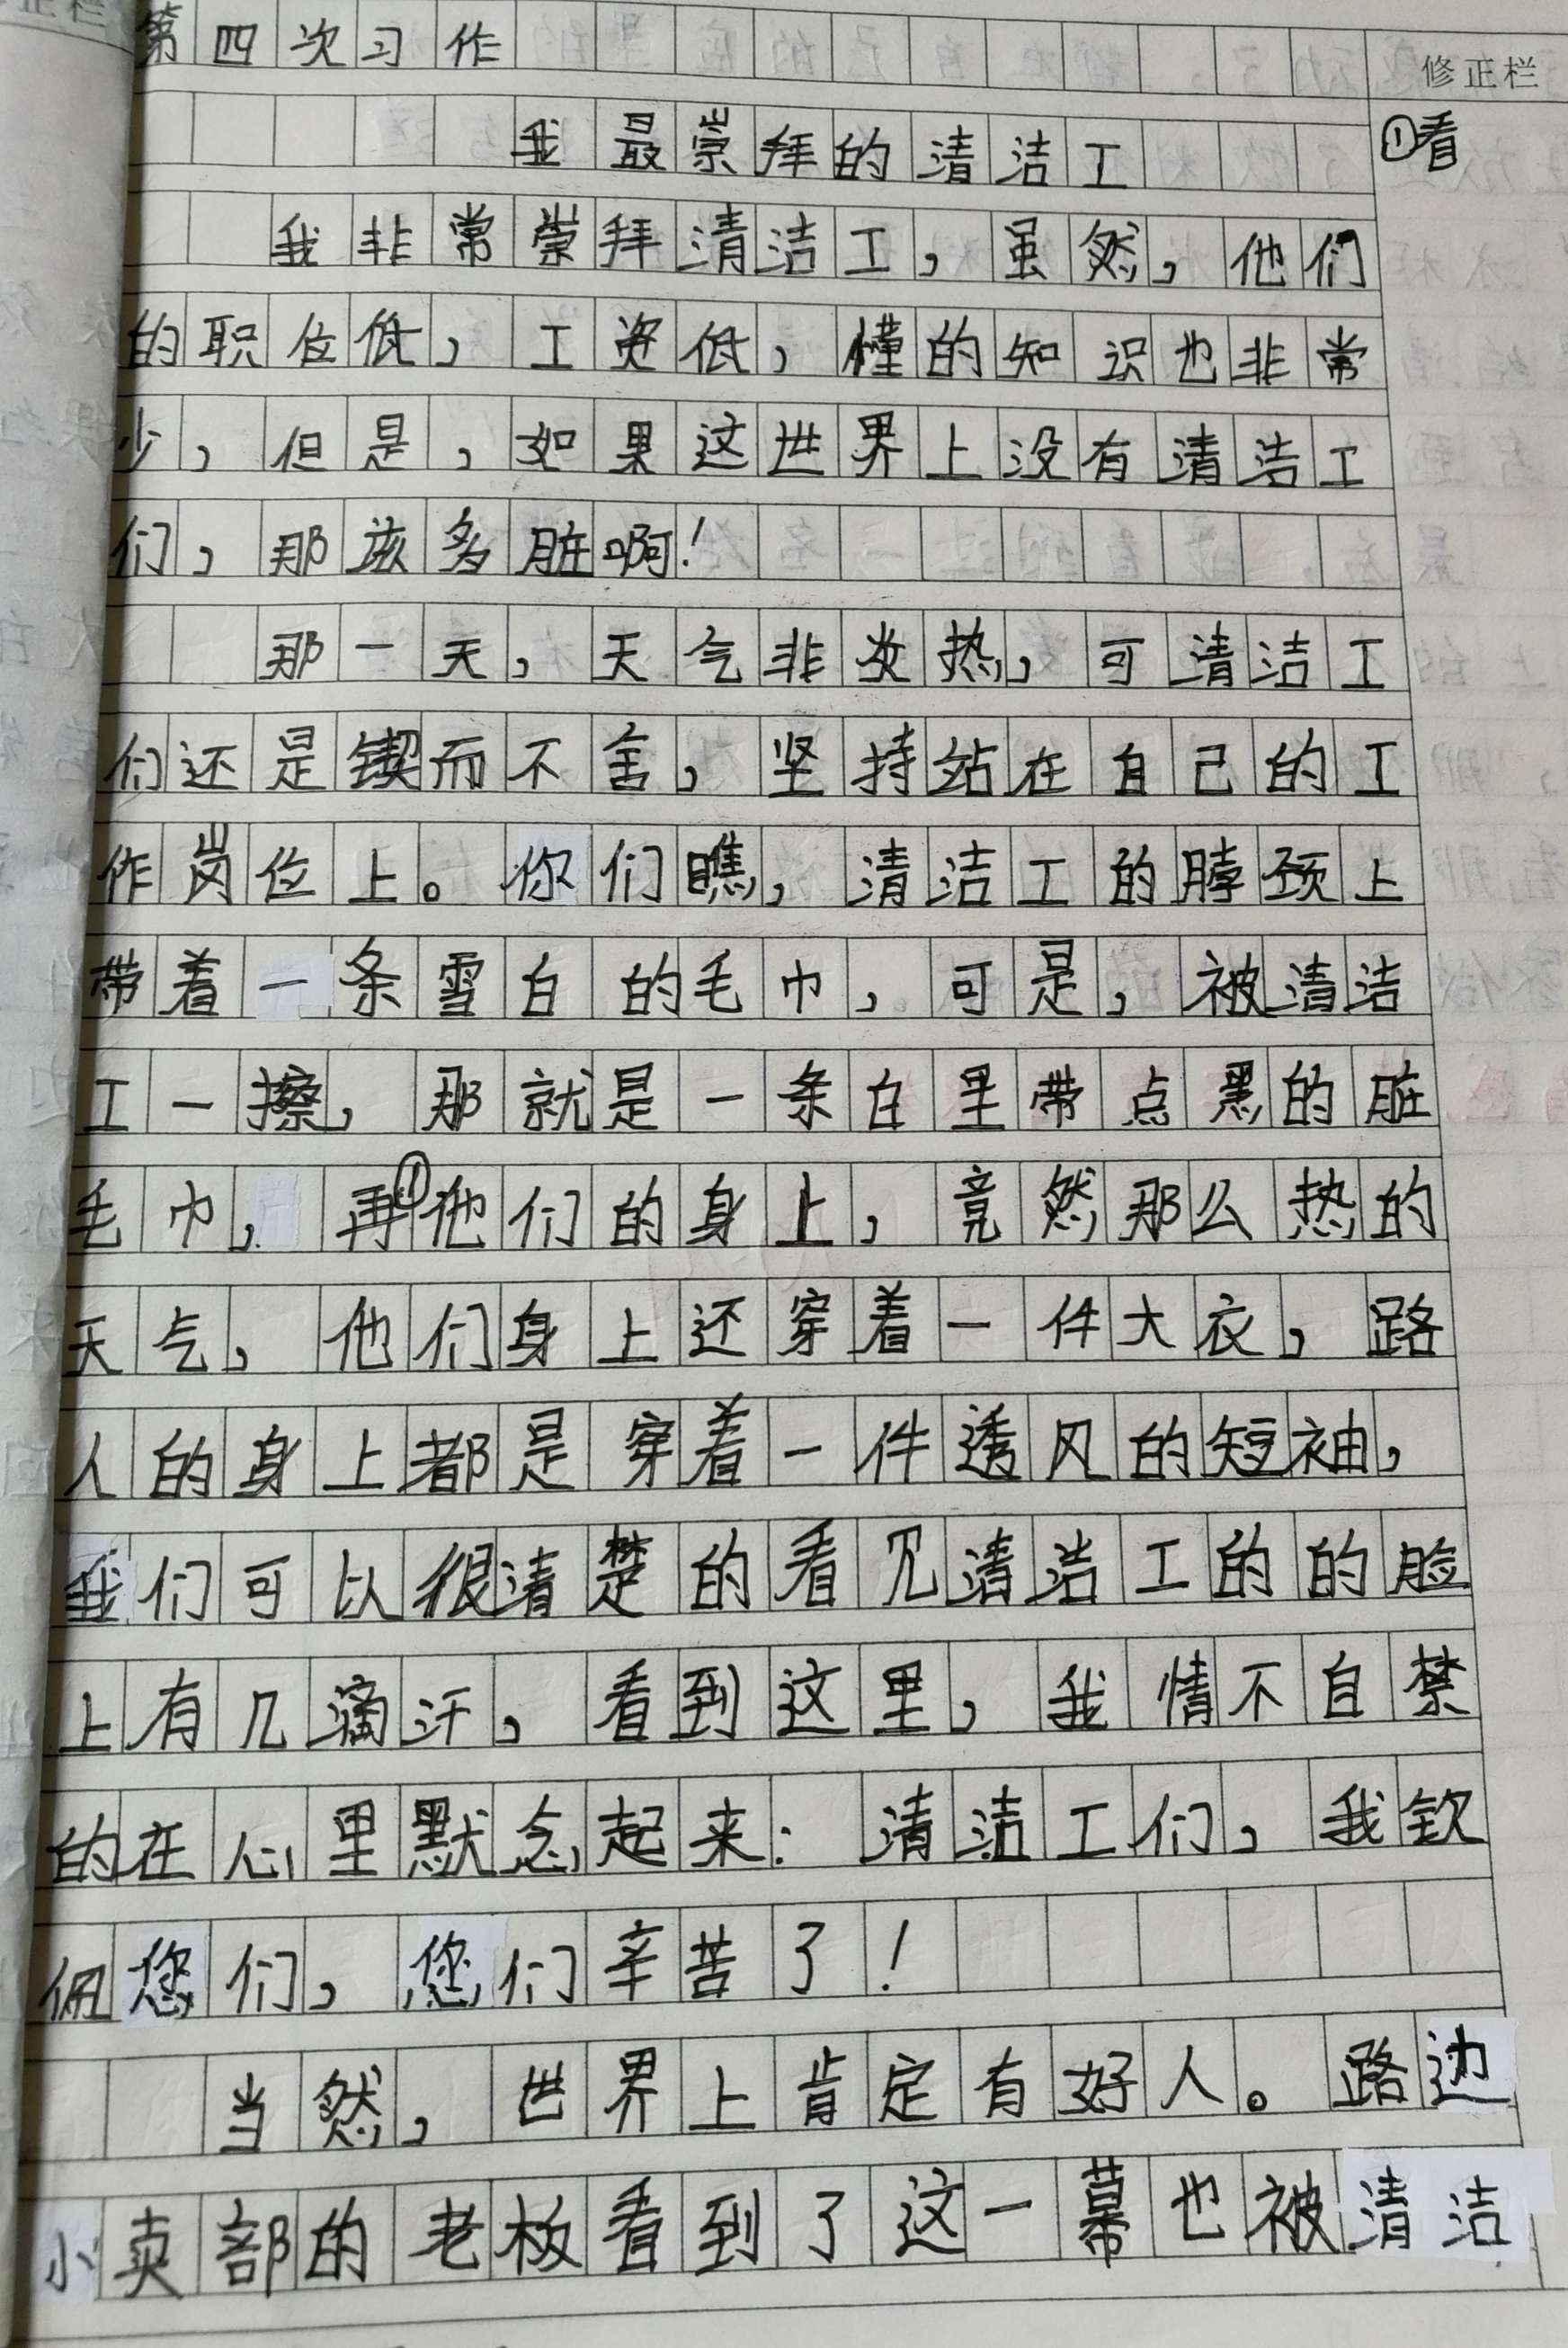 第四次习作
修正栏
我最崇拜的清洁工
①看
我非常崇拜清洁工，虽然，他们
的职位低，工资低，懂的知识也非常
少，但是，如果这世界上没有清洁工
们，那该多脏啊！
那一天，天气非炎热，可清洁工
们还是锲而不舍，坚持站在自己的工
作岗位上。你们瞧，清洁工的脖颈上
带着一条雪白的毛巾，可是，被清洁
工一擦，那就是一条白里带点黑的脏
毛巾，再①他们的身上，竟然那么热的
天气，他们身上还穿着一件大衣，路
人的身上都是穿着一件透风的短袖，
我们可以很清楚的看见清洁工的的脸
上有几滴汗，看到这里，我情不自禁
的在心里默念起来：清洁工们，我钦
佩您们，您们辛苦了！
当然，世界上肯定有好人。路边
小卖部的老板看到了这一幕也被清洁